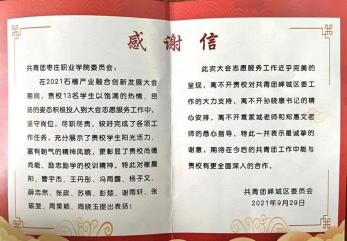 感谢信
共青团枣庄职业学院委员会：
在2021石榴产业融合创新发展大会
期间，贵校13名学生以饱满的热情、昂
扬的姿态积极投入到大会志愿服务工作中，
坚守岗位，尽职尽责，较好完成了各项工
作任务，充分展示了贵校学生阳光活力、
富有朝气的精神风貌，更彰显了贵校尚德
尚能，励志励学的校训精神。特此对崔晨
阳、曹宇杰、王丹彤、冯雨露、杨子文、
薛浩然、张政、苏倩、彭楚、谢雨轩、张
瑞莹、周昊颖、周晓玉提出表扬！
此次大会志愿服务工作近乎完美的
呈现，离不开贵校对共青团峄城区委工
作的大力支持，离不开孙晓康书记的精
心安排，离不开袁家城老师和郑惠文老
师的悉心指导，特此一并表示最诚挚的
谢意，期待在今后的共青团工作中能与
贵校有更全面深入的合作。
共青团峄城区委员会
2021年9月29日